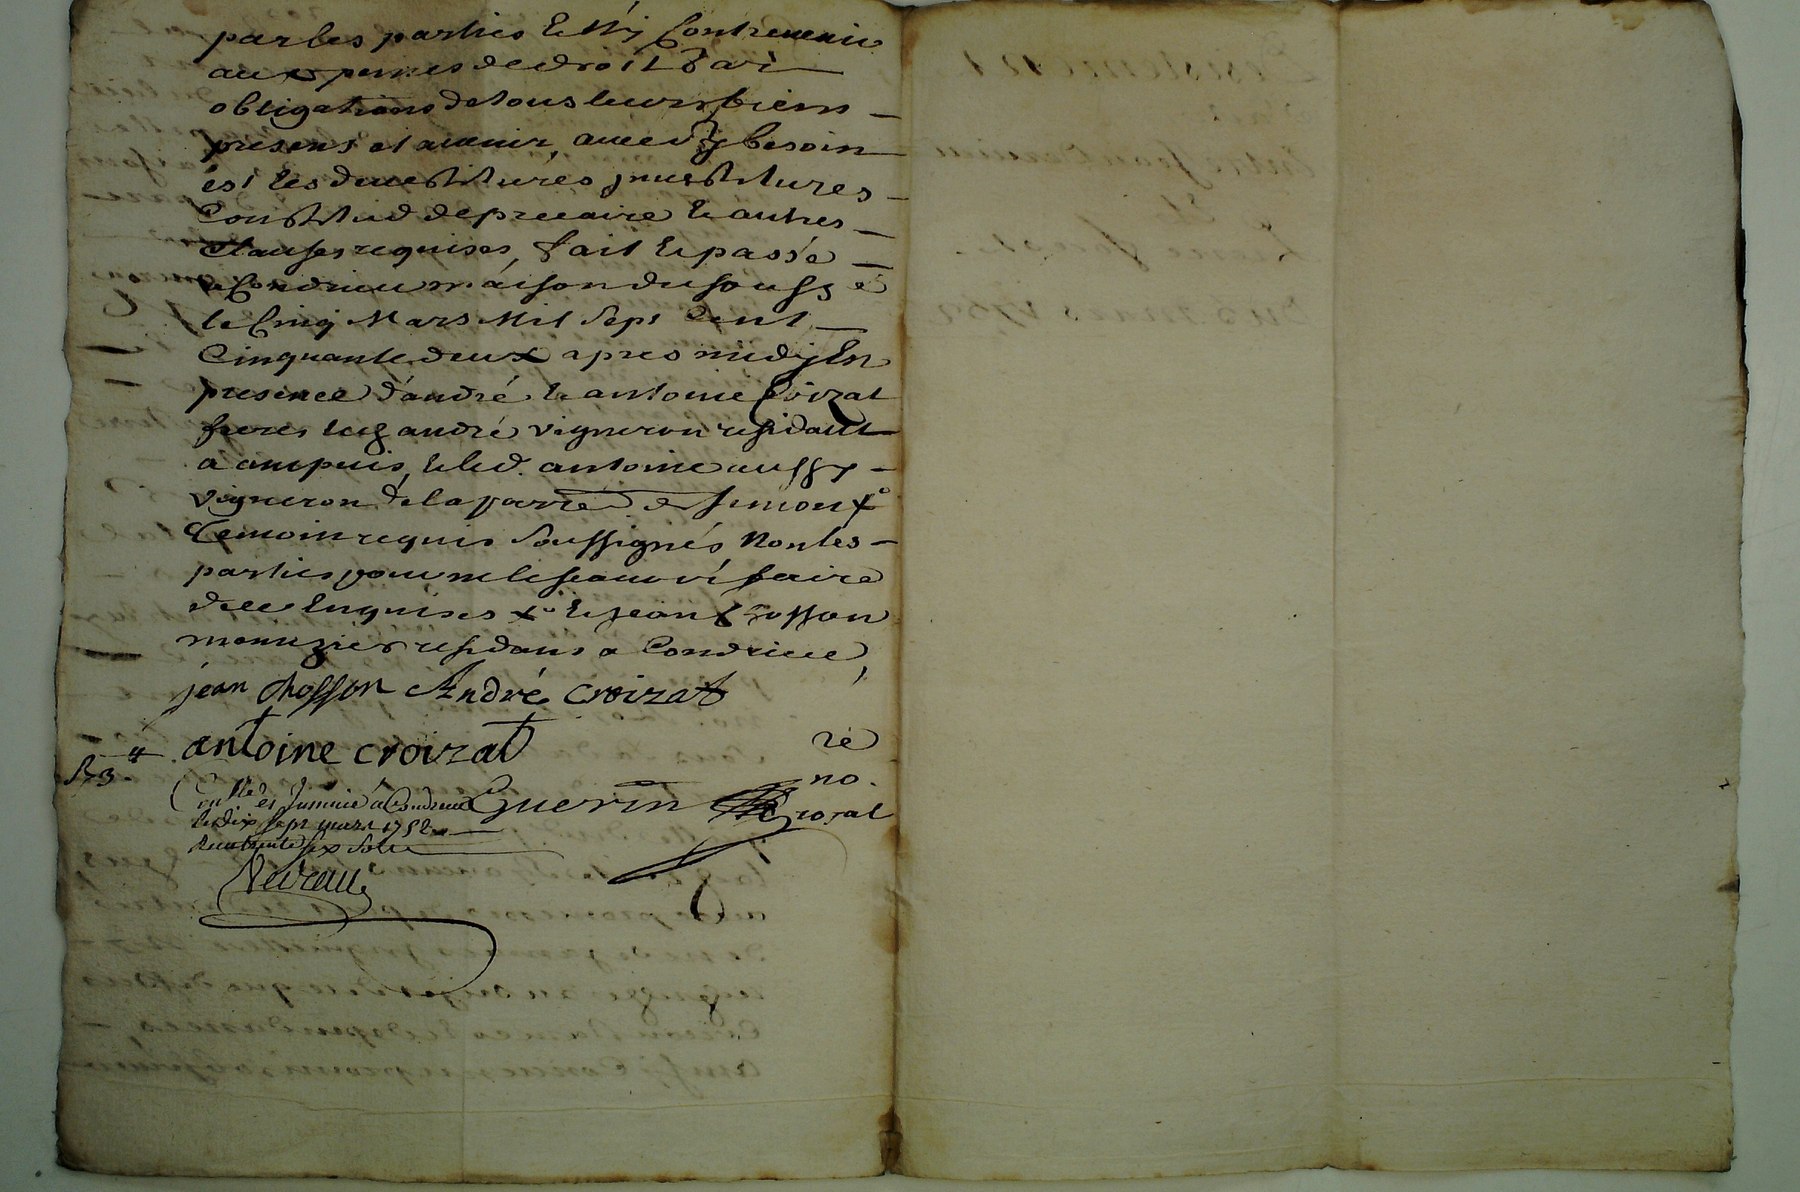 par les parties et n'y Contrevenir
aux peines de droit Par
obligations de tous leurs biens
presens et avenir, avec sy besoin
est les devestitures jnvestitures
Constitud de precaire et autres
Clauses requises, fait et passé
a Condrieu maison du soussg é
le Cinq Mars Mil Sept Cent
Cinquante deux apres midy En
presence d'andré et antoine Croizat
freres led andré vigneron residant
a ampuis, et led. antoine aussy
vigneron de la parre de
Temoin requis soussignés Non les
parties pour ne le scavoir faire
de ce Enquises x et jean Chosson
menuzier residans a Condrieu,
jean chosson André croizat
antoine croizat
re
no.
Guerin royal
Conlled et a Condrieu
le dix sept mars 1752